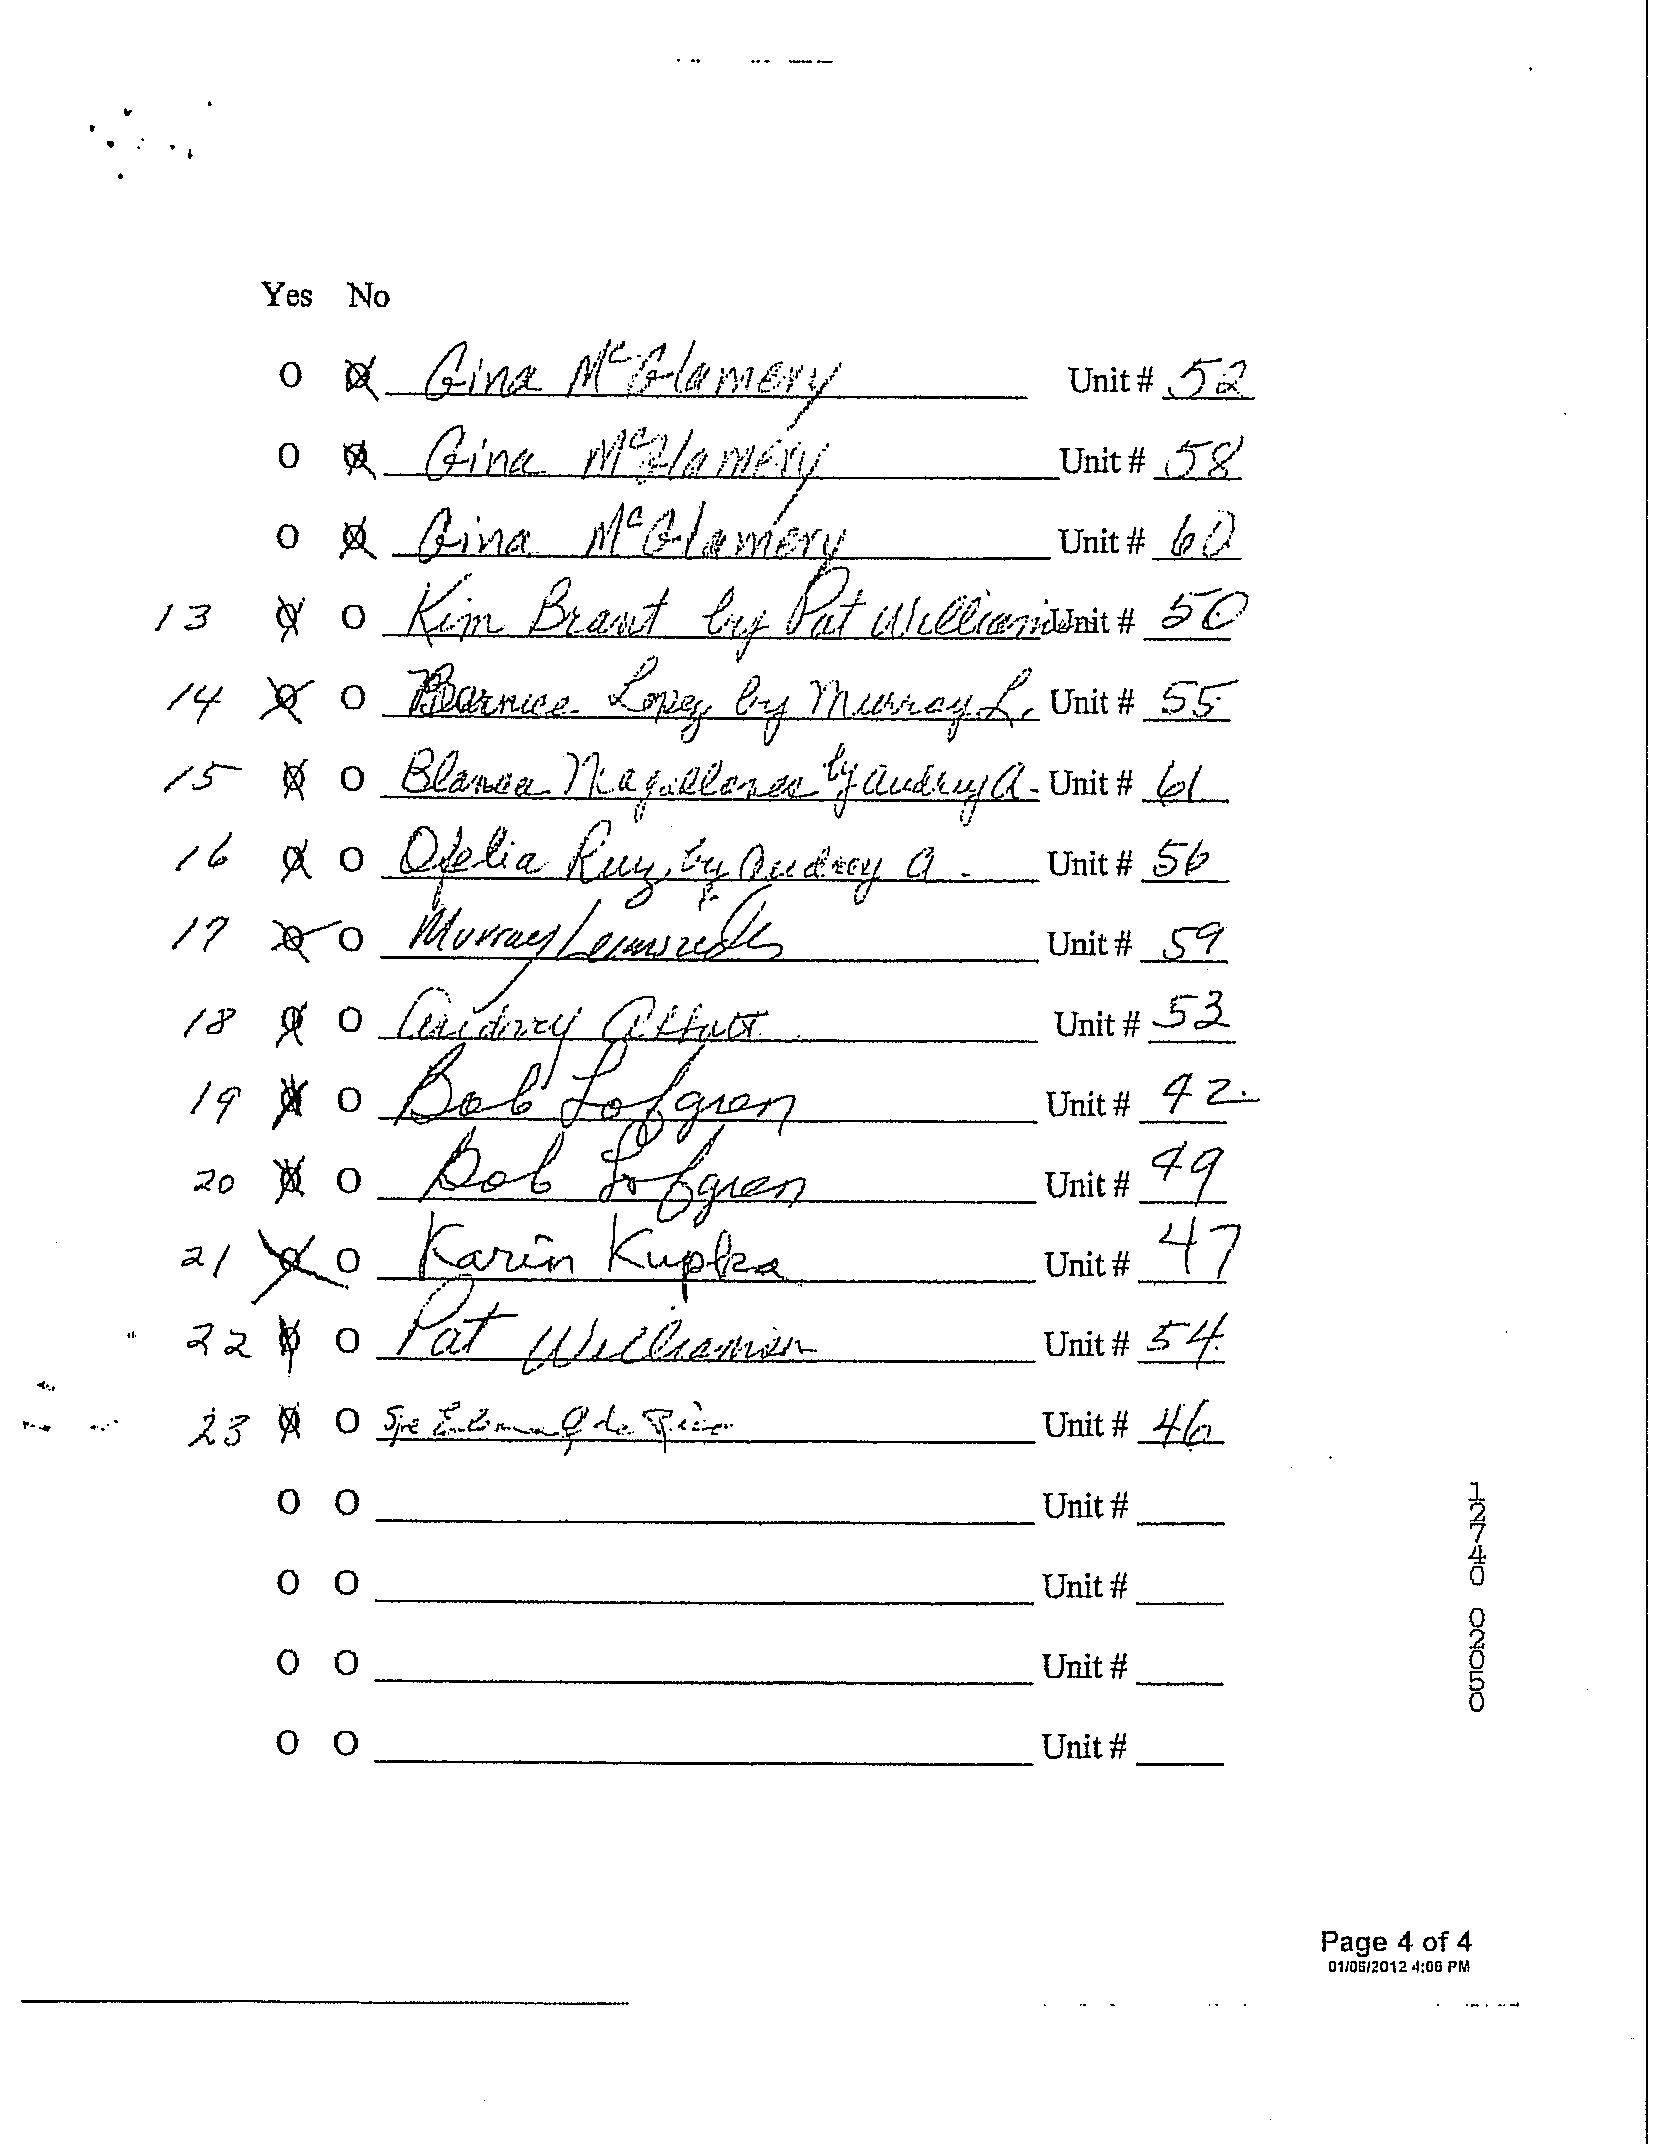 Yes No
O O Gina McGlamery Unit # 52
O O Gina McGlamery Unit # 58
O O Gina McGlamery Unit # 60
13 O O Kim Brant by Pat Williamson Unit # 50
14 O O Bernice Lopez by Murray L. Unit # 55
15 O O Blanca by Audrey A. Unit # 61
16 O O Ofelia Ruiz by Audrey A. Unit # 56
17 O O Murray Unit # 59
18 O O Audrey Unit # 53
19 O O Bob Lofgren Unit # 42
20 O O Bob Lofgren Unit # 49
21 O O Karin Kupka Unit # 47
22 O O Pat Williamson Unit # 54
23 O O Unit # 46
O O Unit #
O O Unit #
O O Unit #
O O Unit #
12740 02050
Page 4 of 4
01/06/2012 4:06 PM